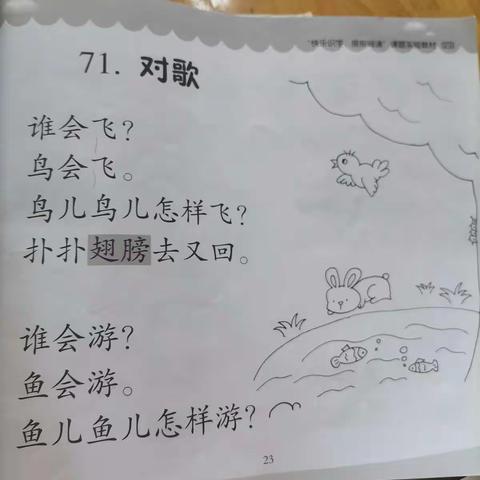 71. 对歌
谁会飞？
鸟会飞。
鸟儿鸟儿怎样飞？
扑扑翅膀去又回。
谁会游？
鱼会游。
鱼儿鱼儿怎样游？
23